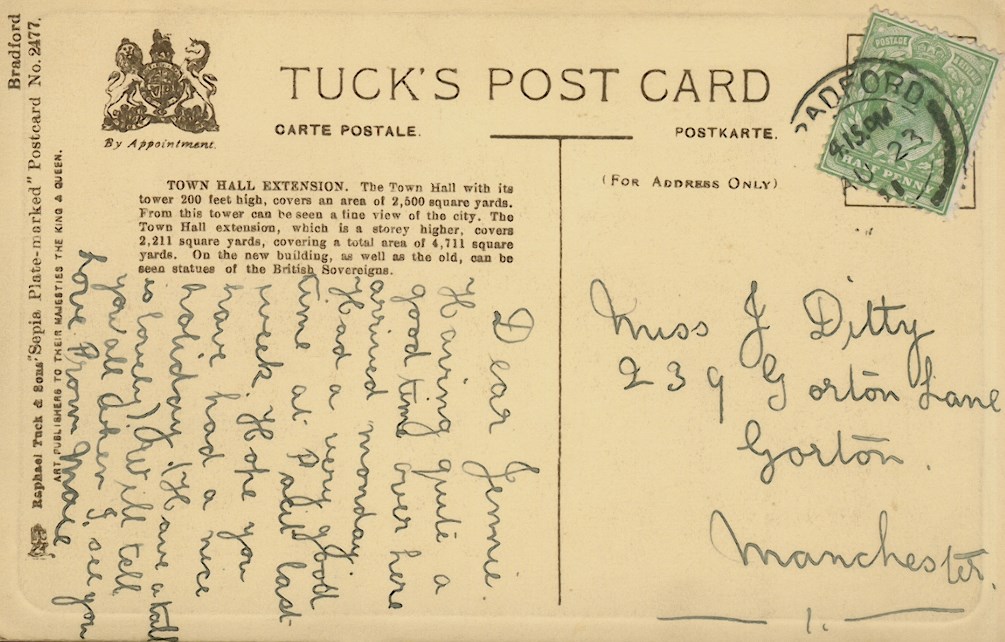 Bradford
Raphael Tuck & Sons' "Sepia Plate-marked" Postcard No. 2477.
ART PUBLISHERS TO THEIR MAJESTIES THE KING & QUEEN.
By Appointment.
TUCK'S POST CARD
CARTE POSTALE.
POSTKARTE.
(FOR ADDRESS ONLY)
TOWN HALL EXTENSION. The Town Hall with its
tower 200 feet high, covers an area of 2,500 square yards.
From this tower can be seen a fine view of the city. The
Town Hall extension, which is a storey higher, covers
2,211 square yards, covering a total area of 4,711 square
yards. On the new building, as well as the old, can be
seen statues of the British Sovereigns.
Dear Jennie.
Having quite a
good time over here
arrived monday.
Had a very good
time at last
week. Hope you
have had a nice
holiday. (Have a
is lovely) Will tell
you all when I see you
Love From
POSTAGE
HALF PENNY
BRADFORD
4.15 PM
AU 23
11
Miss J Ditty
239 Gorton Lane
Gorton.
Manchester.